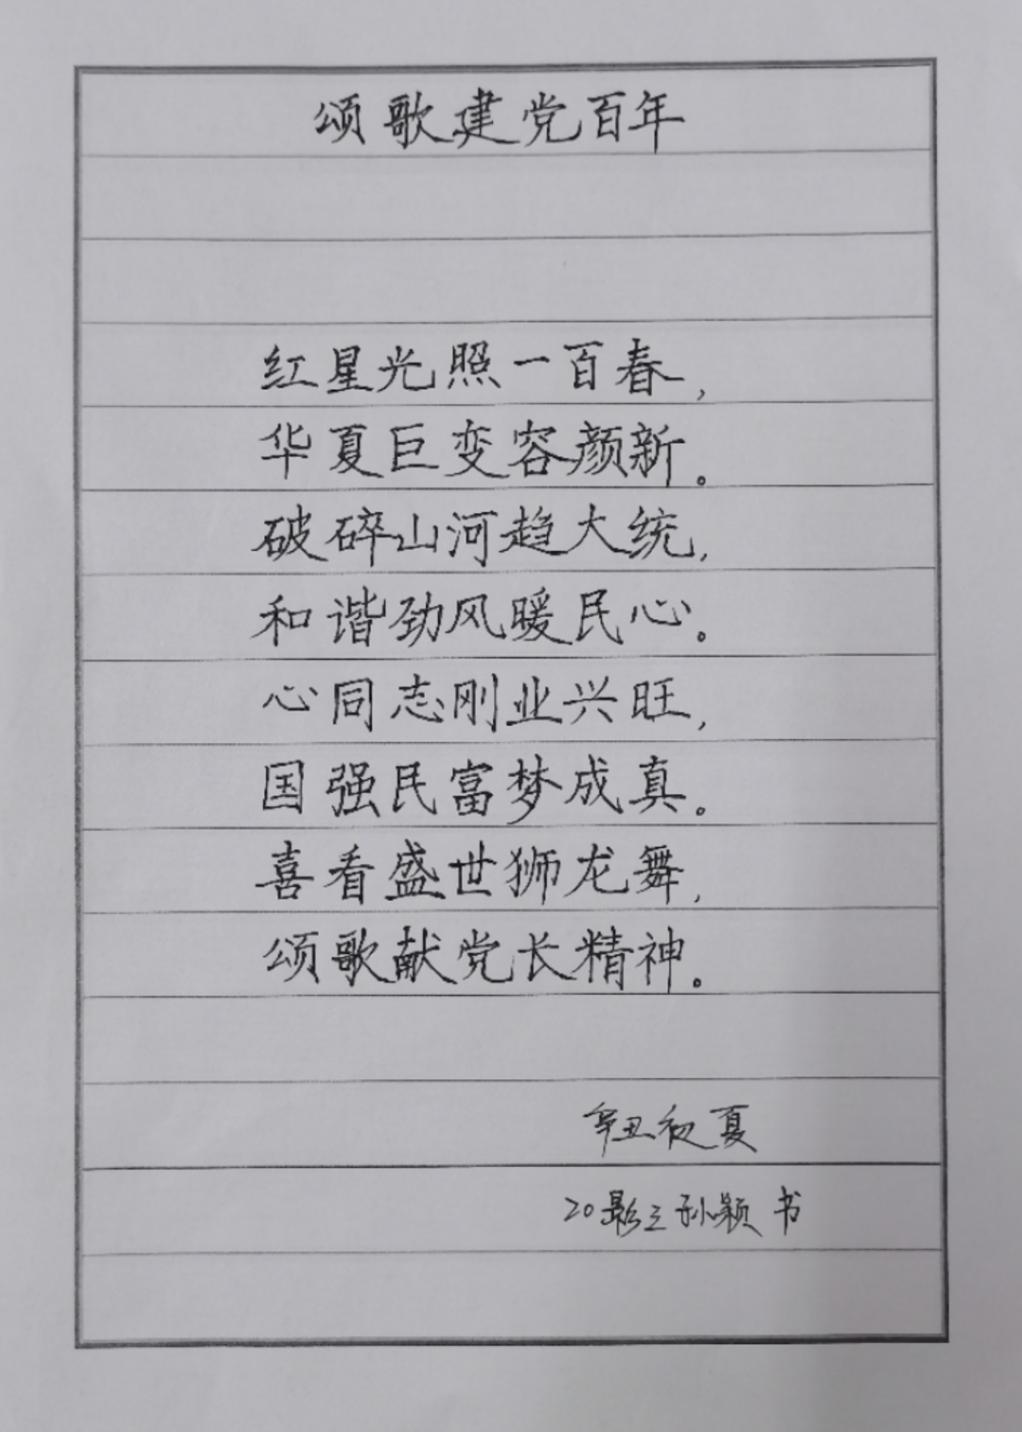 颂歌建党百年
红星光照一百春,
华夏巨变容颜新。
破碎山河趋大统,
和谐劲风暖民心。
心同志刚业兴旺,
国强民富梦成真。
喜看盛世狮龙舞,
颂歌献党长精神。
辛丑初夏
20影三孙颖书